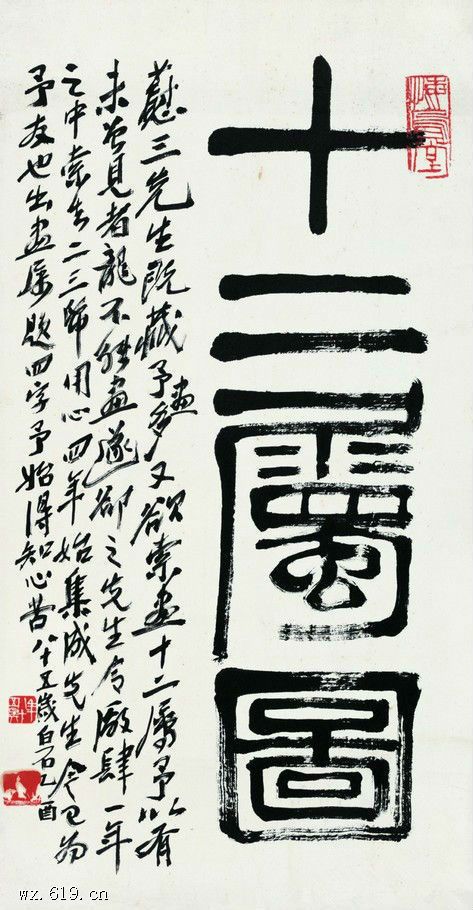 十二屬圖
三先生既藏予畫多又欲索畫十二屬予以有
未曾見者龍不能畫遂卻之先生令廠肆一年
之中索二三用心四年始集成先生今已為
予友也出畫屬題四字予始得知心苦八十五歲白石乙酉
悔烏堂
wx.619.cn